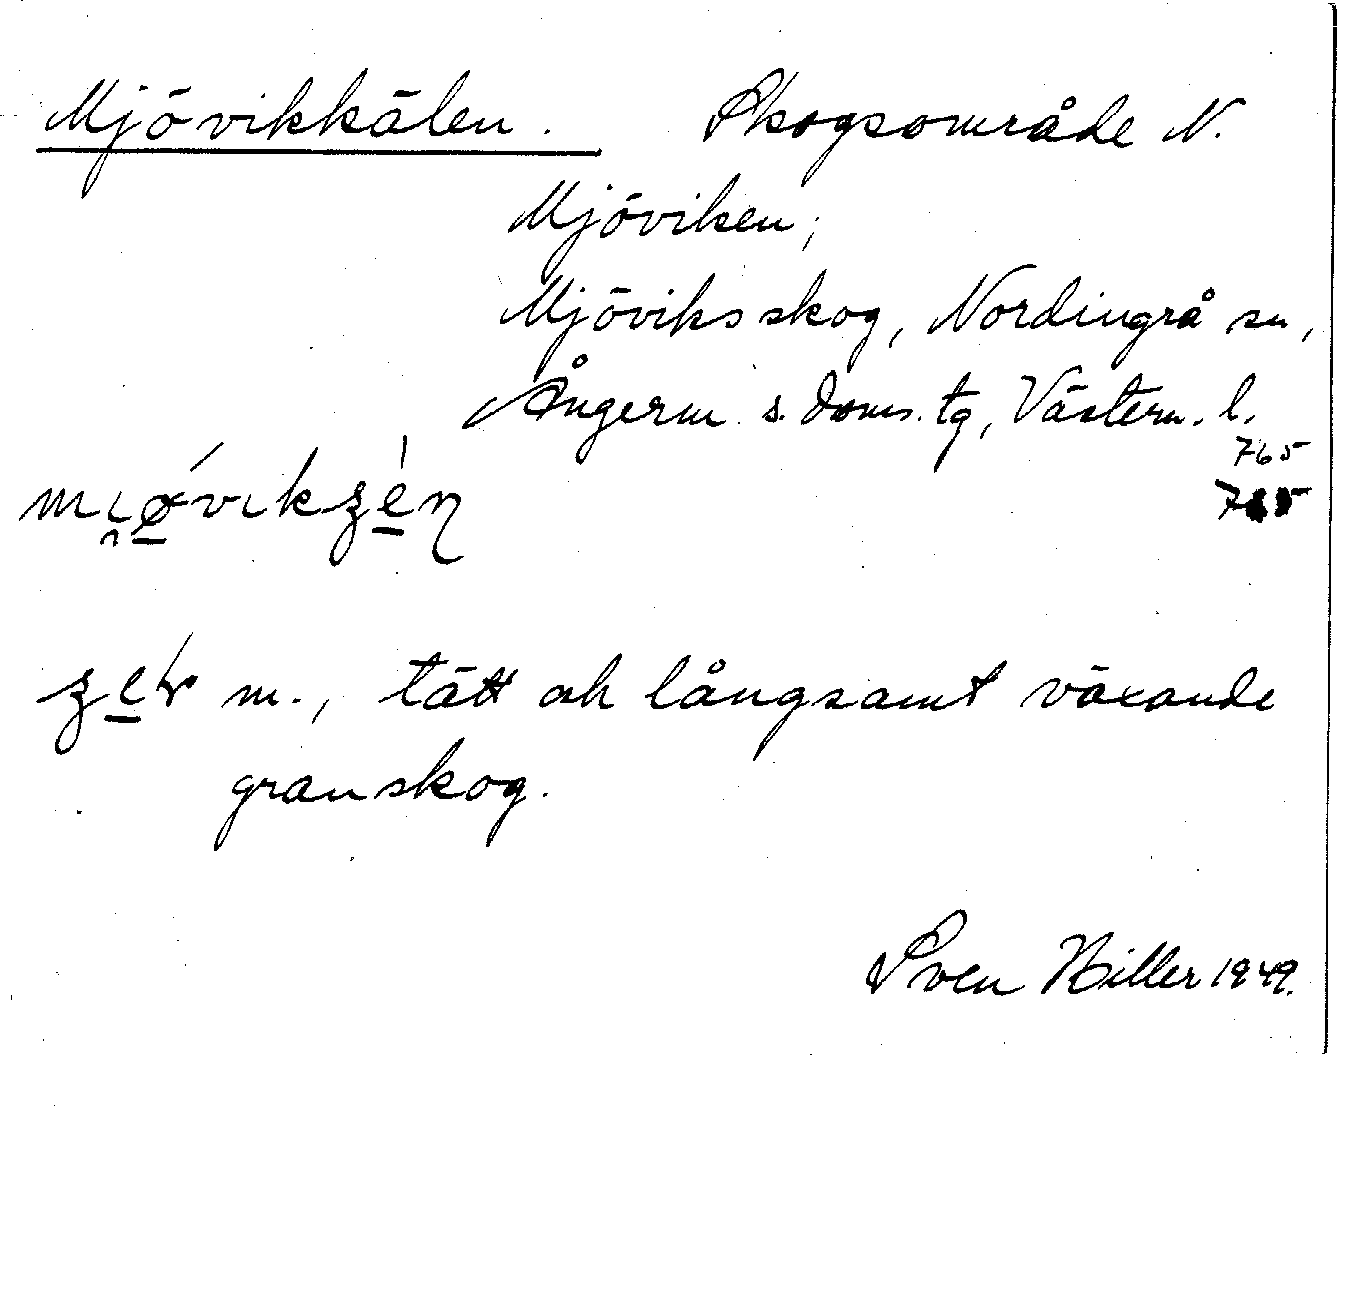 Mjövikkälen. Skogsområde N.
Mjöviken;
Mjöviks skog, Nordingrå sn,
Ångerm. s. doms. tg, Västern. l.
765
765
granskog.
m., tätt och långsamt växande
Sven Hiller 1949.